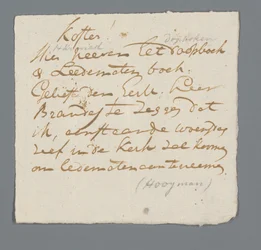 Koster!
Hier neevens het doopboek
& Leedematen boek.
Gelieft den Eerw. Heer
Brandes te zeggen dat
ik, aanstaande woensdag
zelf in de kerk zal komen
om ledematen aanteneemen
(Hooyman)